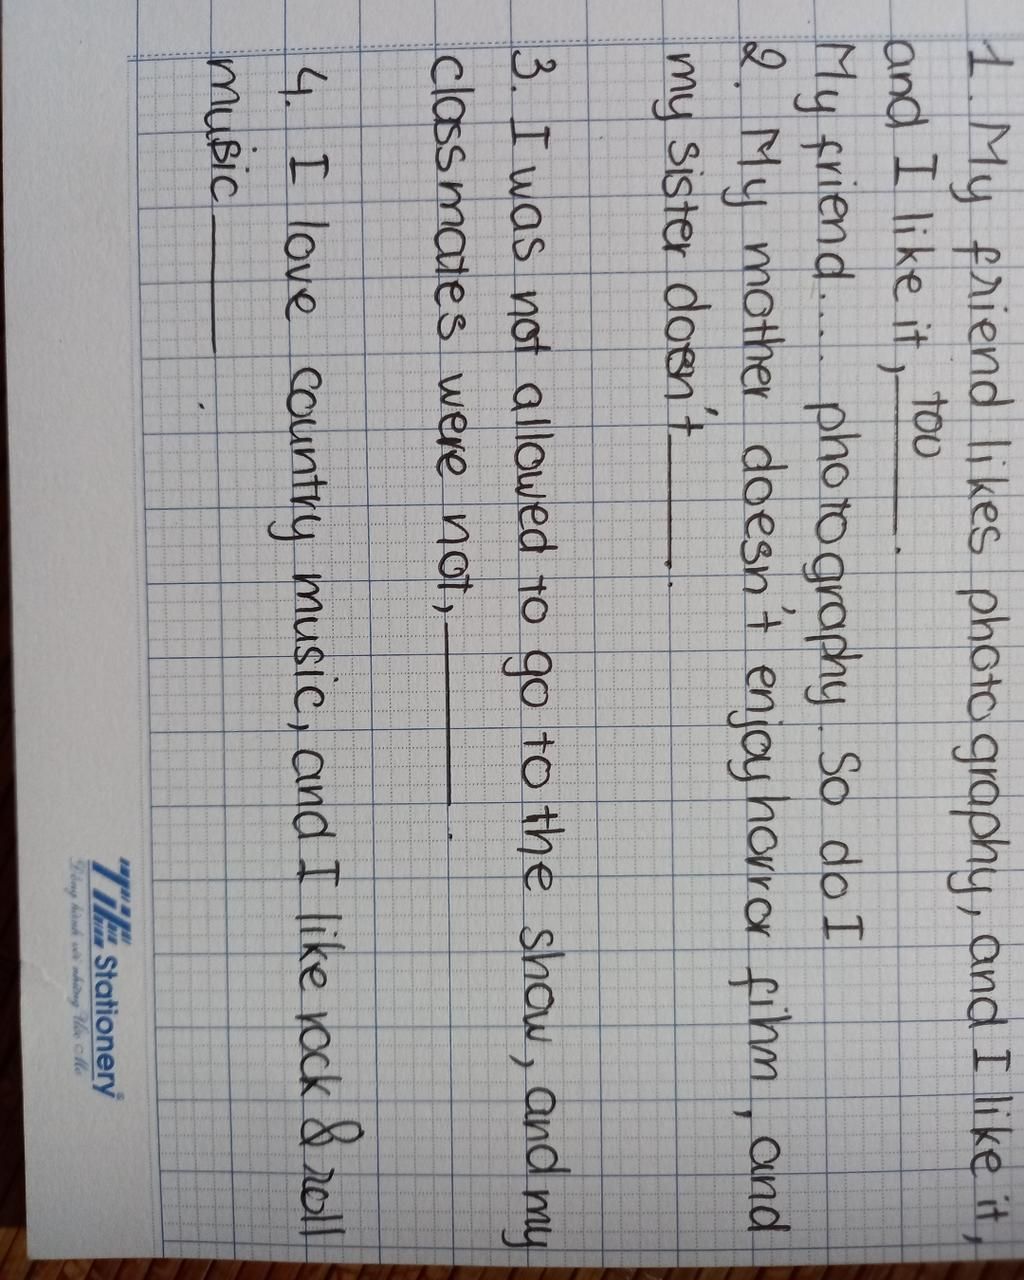 1. My friend likes photography, and I like it,
and I like it, too.
My friend.... photography. So do I
2. My mother doesn't enjoy horror fihm, and
my sister doen't ______.
3. I was not allowed to go to the show, and my
classmates were not, ______.
4. I love country music, and I like rock & roll
music ______.
TP Stationery
Đồng hành với những Ước Mơ